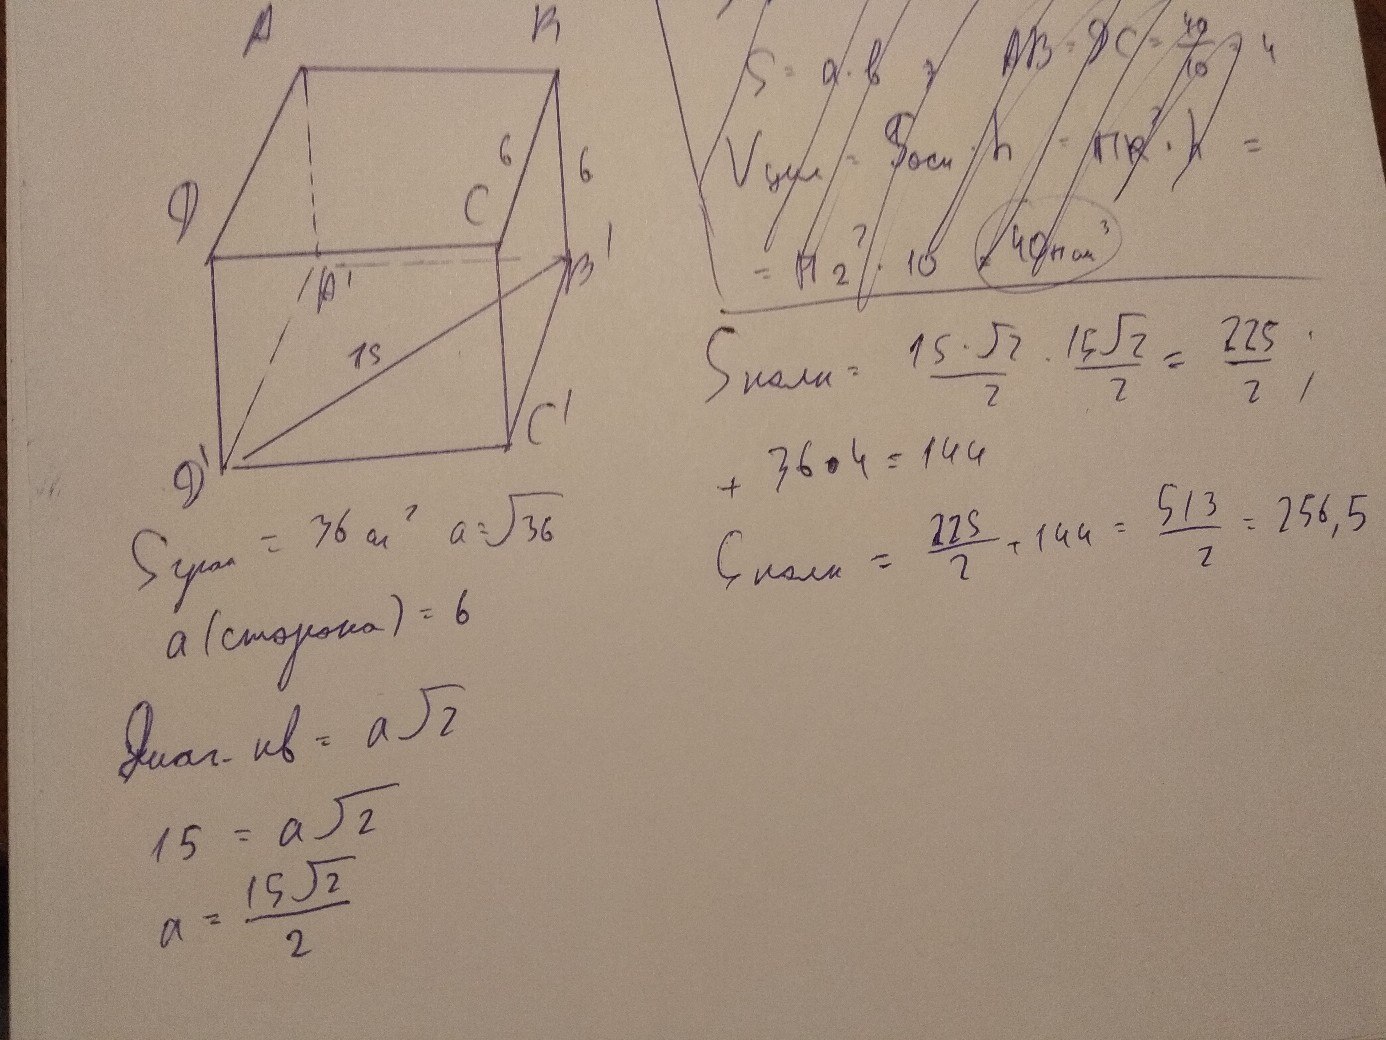 A B
D C 6 6
A' B'
15
D' C'
Sгран = 36 см² a=√36
a (сторона) = 6
Диаг. кв = a√2
15 = a√2
a = 15√2/2
S = a·b AB = DC = 40/10 = 4
Vцил = Sосн · h = ПR² · h =
= П 2² · 10 = 40П см³
Sполн = 15·√2/2 · 15√2/2 = 225/2 ;
+ 36·4 = 144
Sполн = 225/2 + 144 = 513/2 = 256,5